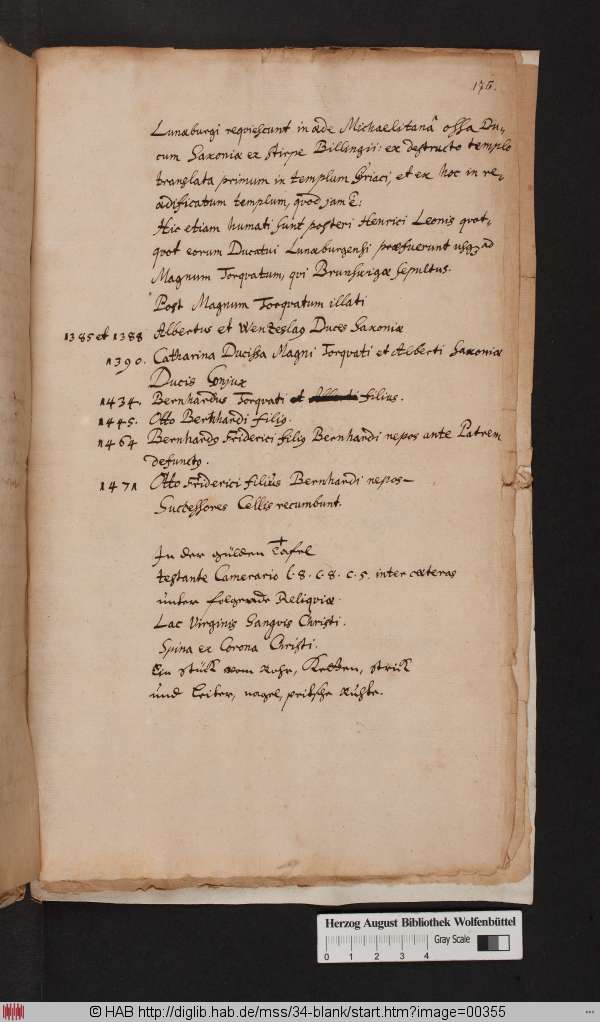 176.
Lunæburgi reqviescunt in æde Michaelitanâ ossa Du-
cum Saxoniæ ex stirpe Billingii: ex destructo templo
translata primum in templum Cyriaci, et ex hoc in re-
ædificatum templum, qvod jam E:
Hic etiam humati sunt posteri Henrici Leonis qvot-
qvot eorum Ducatui Lunæburgensi præfuerunt usq ad
Magnum Torqvatum, qvi Brunswigæ sepultus.
Post Magnum Torqvatum illati
1385 et 1388 Albertus et Wenzeslaq Duces Saxoniæ
1390. Catharina Ducissa Magni Torqvati et Alberti Saxoniæ
Ducis Conjux
1434. Bernhardus Torqvati et Alberti filius.
1445. Otto Bernhardi filiq.
1464 Bernhardq Friderici filiq Bernhardi nepos ante Patrem
defunctq.
1471 Otto Friderici filius Bernhardi nepos
Successores Cellis recumbunt.
In der gülden Tafel
testante Camerario l. 8. c. 8. c. 5. inter cæteras
unter folgende Reliqviæ.
Lac Virginis Sangvis Christi.
Spina ex Corona Christi.
Ein stück vom Rohr, Ketten, strick
und Leiter, nagel, peitsche Ruhte.
Herzog August Bibliothek Wolfenbüttel
0 1 2 3 4 Gray Scale
© HAB http://diglib.hab.de/mss/34-blank/start.htm?image=00355